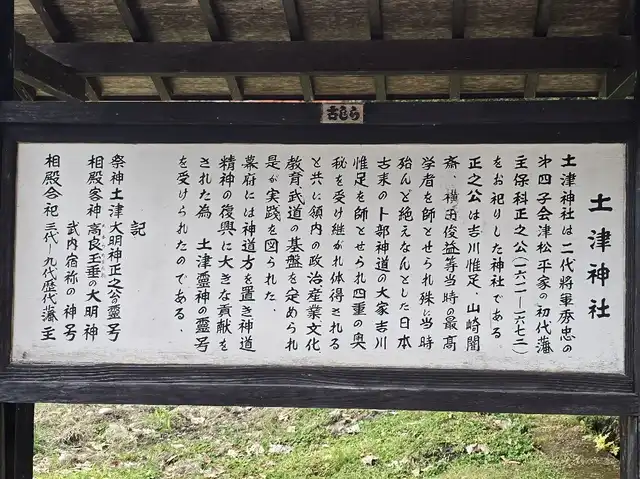 古しら
土津神社
土津神社は二代将軍秀忠の
第四子会津松平家の初代藩
主保科正之公(一六一一―一六七二)
をお祀りした神社である
正之公は吉川惟足、山崎闇
斎、横田俊益等当時の最高
学者を師とせられ殊に当時
殆んど絶えなんとした日本
古来の卜部神道の大家吉川
惟足を師とせられ四重の奥
秘を受け継がれ体得される
と共に領内の政治産業文化
教育武道の基盤を定められ
是が実践を図られた。
幕府には神道方を置き神道
精神の復興に大きな貢献を
された為 土津霊神の霊号
を受けられたのである。
記
祭神 土津大明神正之公の霊号
相殿客神 高良玉垂の大明神
武内宿祢の神号
相殿合祀 三代~九代歴代藩主